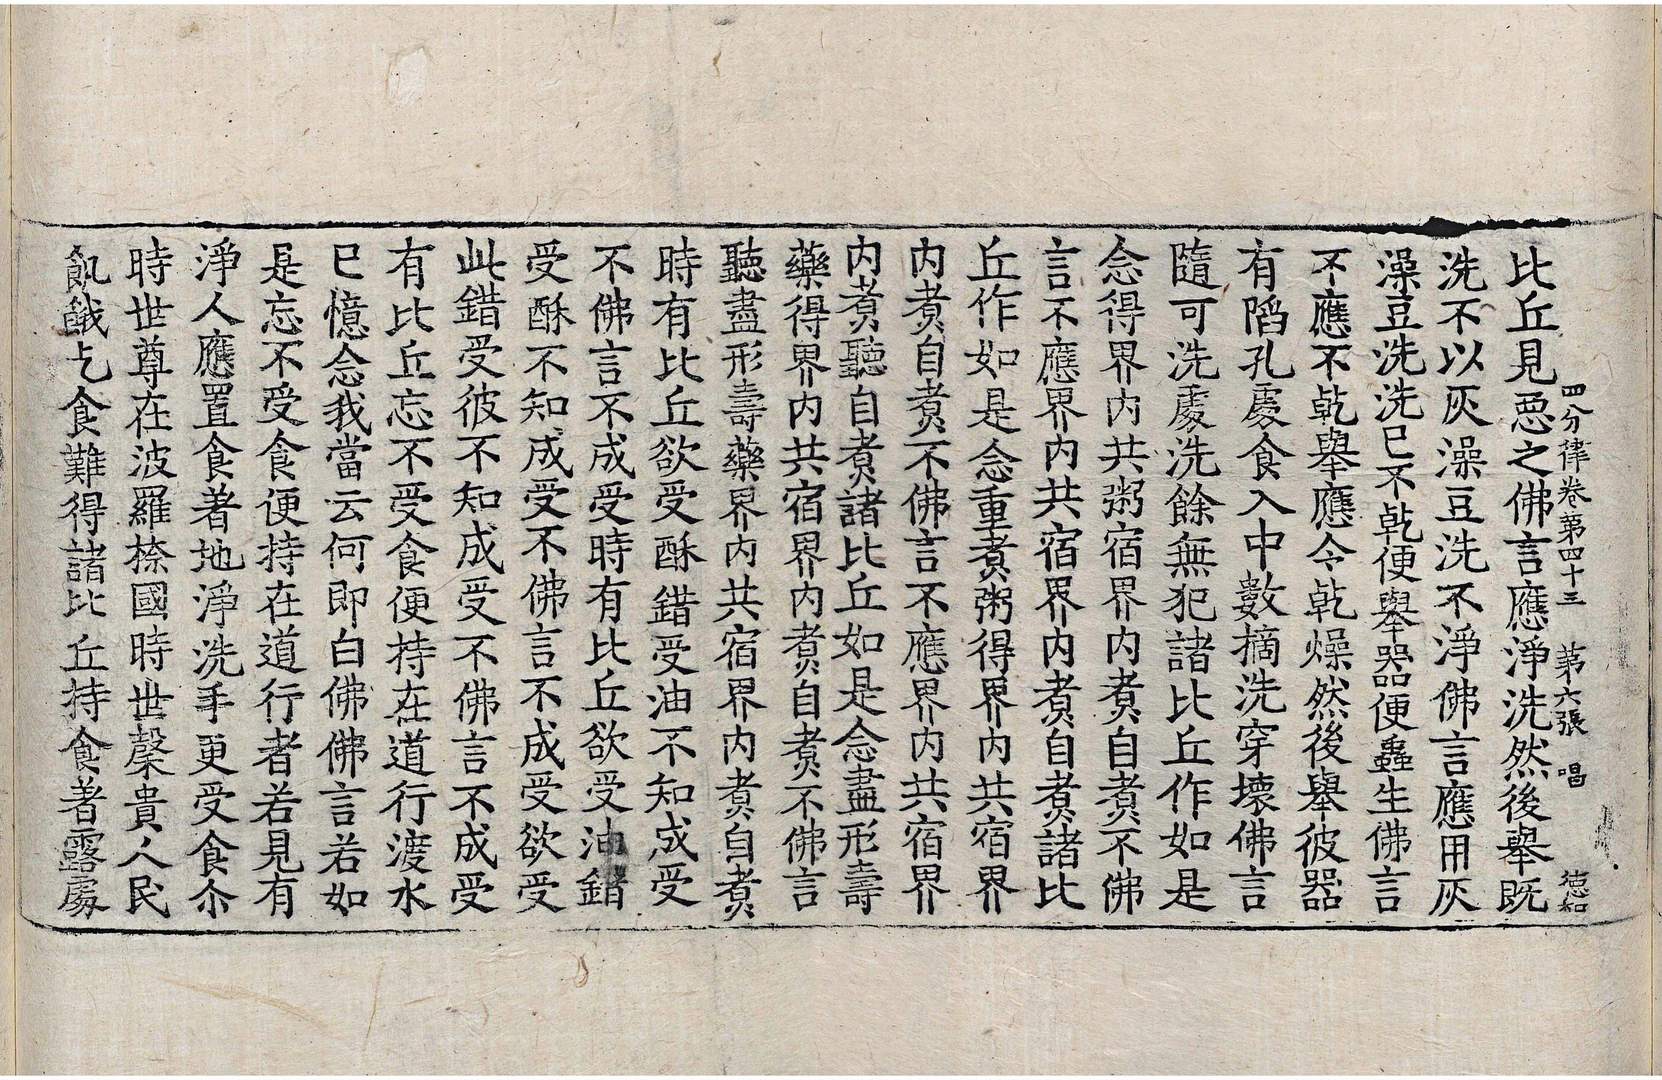 四分律卷第四十三 第六張 唱 德和
比丘見惡之佛言應淨洗然後舉既
洗不以灰澡豆洗不淨佛言應用灰
澡豆洗洗已不乹便舉器便蟲生佛言
不應不乹舉應令乹燥然後舉彼器
有謟孔處食入中數擿洗穿壞佛言
隨可洗處洗餘無犯諸比丘作如是
念得界內共粥宿界內煮自煮不佛
言不應界內共宿界內煮自煮諸比
丘作如是念重煮粥得界內共宿界
內煮自煮不佛言不應界內共宿界
內煮聽自煮諸比丘如是念盡形壽
藥得界內共宿界內煮自煮不佛言
聽盡形壽藥界內共宿界內煮自煮
時有比丘欲受酥錯受油不知成受
不佛言不成受時有比丘欲受油錯
受酥不知成受不佛言不成受欲受
此錯受彼不知成受不佛言不成受
有比丘忘不受食便持在道行渡水
已憶念我當云何即白佛佛言若如
是忘不受食便持在道行者若見有
淨人應置食著地淨洗手更受食尒
時世尊在波羅㮈國時世穀貴人民
飢餓乞食難得諸比丘持食著露處